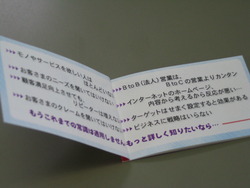 モノやサービスを欲しい人は
ほとんどいない
お客さまのニーズを聞いてはいけない
顧客満足向上させても、
リピーターは増えない
お客さまのクレームを聞いてはいけない
もうこれまでの常識は通用しません
BtoB（法人）営業は、
BtoCの営業よりカンタン
インターネットのホームページ、
内容から考えるから反応が悪い…
ターゲットはせまく設定すると効果がある
ビジネスに戦略はいらない
もっと詳しく知りたいなら…